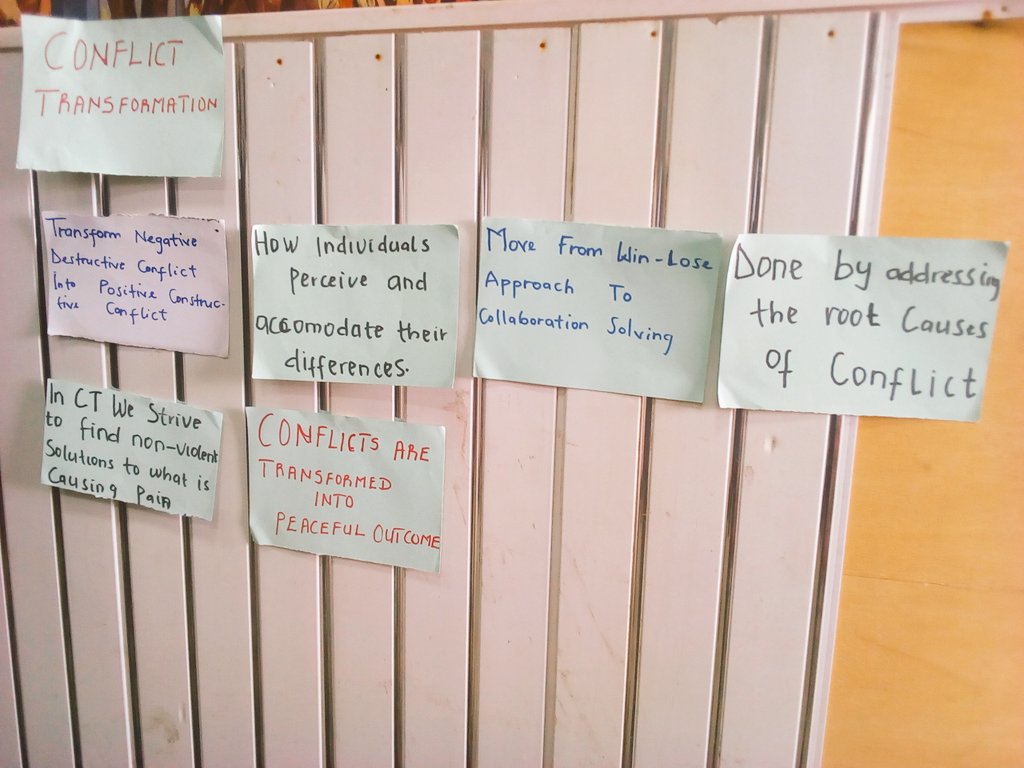 CONFLICT
TRANSFORMATION
Transform Negative
Destructive Conflict
Into Positive Construc-
tive Conflict
How Individuals
Perceive and
accomodate their
differences.
Move From Win-Lose
Approach To
Collaboration Solving
Done by addressing
the root Causes
of Conflict
In CT We Strive
to find non-violent
Solutions to what is
Causing Pain
CONFLICTS ARE
TRANSFORMED
INTO
PEACEFUL OUTCOME